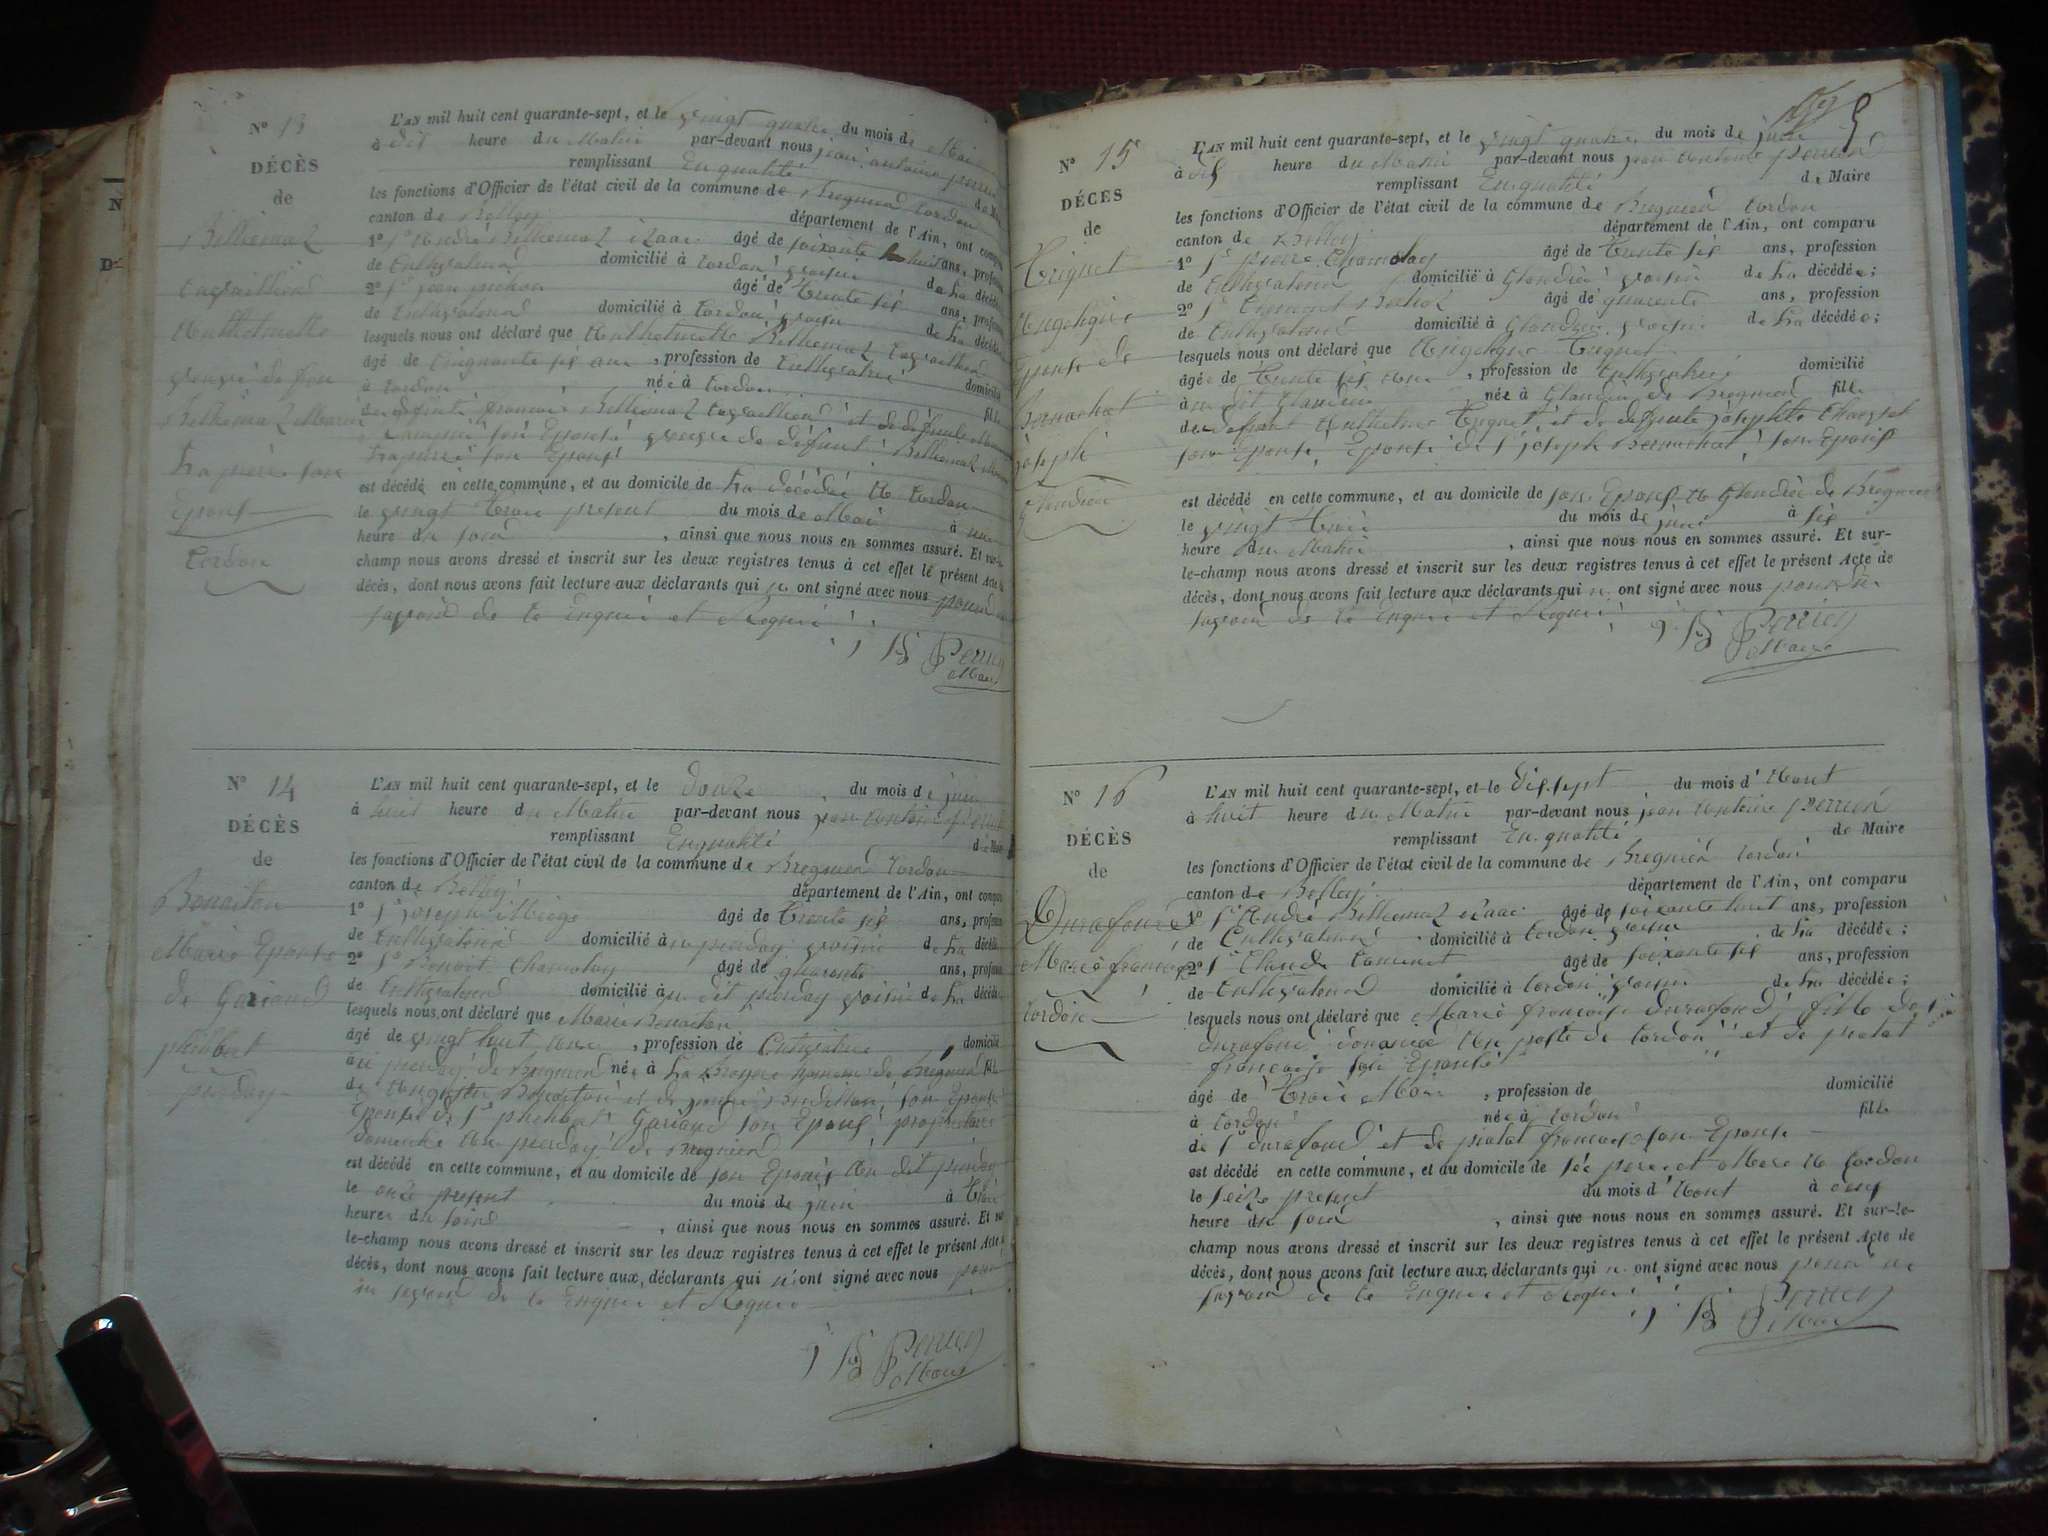 N° 13
DÉCÈS
de
Billiemaz
Anthelmette
veuve de feu
Billiemaz
son
Epoux
Cordon
L'AN mil huit cent quarante-sept, et le vingt quatre du mois de Mai
à dix heure du Matin par-devant nous jean antoine perrier
remplissant En qualité
les fonctions d'Officier de l'état civil de la commune de Bregnier Cordon
canton de Belley département de l'Ain, ont comparu
1° Sr André Billiemaz izaac âgé de soixante huit ans, profession
de Cultivateur domicilié à Cordon voisin de la décédée
2° Sr jean pichon âgé de trente six ans, profession
de Cultivateur domicilié à Cordon voisin de la décédée
lesquels nous ont déclaré que Anthelmette Billiemaz
âgé de Cinquante six ans, profession de Cultivatrice domicilié
à Cordon née à Cordon fille
de défunt françois Billiemaz et de défunte
son Epouse veuve de défunt Billiemaz
son Epoux
est décédé en cette commune, et au domicile de la décédée à Cordon
le vingt trois présent du mois de Mai à une
heure du soir, ainsi que nous nous en sommes assuré. Et sur-le-
champ nous avons dressé et inscrit sur les deux registres tenus à cet effet le présent Acte de
décès, dont nous avons fait lecture aux déclarants qui n ont signé avec nous pour ne
savoir de ce Enquis et Requis
J A Perrier
Maire
N° 14
DÉCÈS
de
Benoiton
Marie Epouse
de Gariand
philibert
pierday
L'AN mil huit cent quarante-sept, et le Douze du mois de juin
à huit heure du Matin par-devant nous jean antoine perrier
remplissant En qualité de Maire
les fonctions d'Officier de l'état civil de la commune de Bregnier Cordon
canton de Belley département de l'Ain, ont comparu
1° Sr joseph Miége âgé de trente six ans, profession
de Cultivateur domicilié à pierday voisin de la décédée
2° Sr Benoit Chamolay âgé de quarante ans, profession
de Cultivateur domicilié au dit pierday voisin de la décédée
lesquels nous ont déclaré que Marie Benoiton
âgé de vingt huit ans, profession de Cultivatrice domicilié
à pierday de Bregnier née à la de Bregnier fille
de Benoiton et de son Epouse
Epouse de Sr philibert Gariand son Epoux propriétaire
à pierday de Bregnier
est décédé en cette commune, et au domicile de son Epoux au dit pierday
le onze présent du mois de juin à trois
heures du soir, ainsi que nous nous en sommes assuré. Et sur-
le-champ nous avons dressé et inscrit sur les deux registres tenus à cet effet le présent Acte de
décès, dont nous avons fait lecture aux déclarants qui n'ont signé avec nous pour
ne savoir de ce Enquis et Requis
J A Perrier
Maire
N° 15
DÉCÈS
de
Triquet
Angelique
Epouse de
Bernachot
joseph
Glandieu
L'AN mil huit cent quarante-sept, et le vingt quatre du mois de juin
à dix heure du Matin par-devant nous jean antoine perrier
remplissant En qualité de Maire
les fonctions d'Officier de l'état civil de la commune de Bregnier Cordon
canton de Belley département de l'Ain, ont comparu
1° Sr pierre Chamolay âgé de trente six ans, profession
de Cultivateur domicilié à Glandieu voisin de la décédée;
2° Sr âgé de quarante ans, profession
de Cultivateur domicilié à Glandieu voisin de la décédée;
lesquels nous ont déclaré que Angelique Triquet
âgée de trente six ans, profession de Cultivatrice domicilié
à au dit Glandieu née à Glandieu de Bregnier fille
de défunt Anthelme Triquet et de défunte josephte
son Epouse, Epouse de Sr joseph Bernachot son Epoux
est décédé en cette commune, et au domicile de son Epoux à Glandieu de Bregnier
le vingt trois du mois de juin à six
heure du Matin, ainsi que nous nous en sommes assuré. Et sur-
le-champ nous avons dressé et inscrit sur les deux registres tenus à cet effet le présent Acte de
décès, dont nous avons fait lecture aux déclarants qui n ont signé avec nous pour ne
savoir de ce Enquis et Requis
J A Perrier
Maire
N° 16
DÉCÈS
de
Durafour
Marie françoise
Cordon
L'AN mil huit cent quarante-sept, et le Dix sept du mois d'Aout
à huit heure du Matin par-devant nous jean antoine perrier
remplissant En qualité de Maire
les fonctions d'Officier de l'état civil de la commune de Bregnier Cordon
canton de Belley département de l'Ain, ont comparu
1° Sr André Billiemaz izaac âgé de soixante huit ans, profession
de Cultivateur domicilié à Cordon voisin de la décédée;
2° Sr Claude âgé de soixante six ans, profession
de Cultivateur domicilié à Cordon voisin de la décédée;
lesquels nous ont déclaré que Marie françoise durafour fille de
durafour douanier au poste de Cordon et de piolat
françoise son Epouse
âgé de trois Mois, profession de domicilié
à Cordon née à Cordon fille
de Sr durafour et de piolat françoise son Epouse
est décédé en cette commune, et au domicile de ses pere et Mere à Cordon
le seize présent du mois d'Aout à onze
heure du soir, ainsi que nous nous en sommes assuré. Et sur-le-
champ nous avons dressé et inscrit sur les deux registres tenus à cet effet le présent Acte de
décès, dont nous avons fait lecture aux déclarants qui n ont signé avec nous pour ne
savoir de ce Enquis et Requis
J A Perrier
Maire